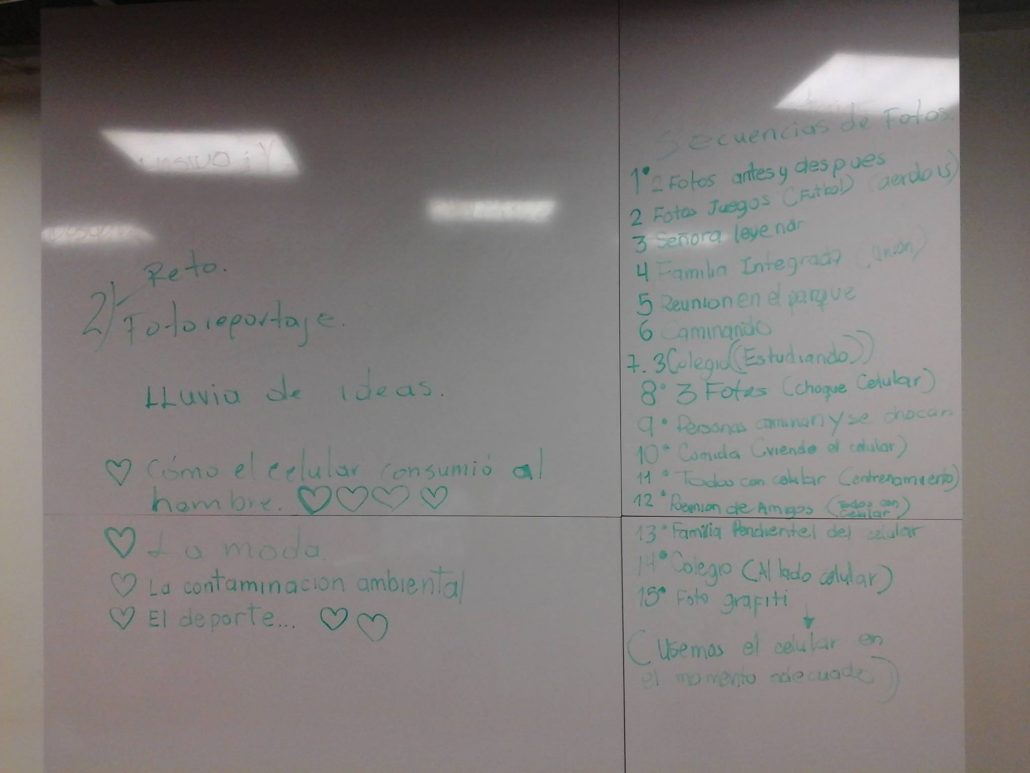 2) Reto.
Fotoreportaje.
LLuvia de ideas.
♡ Cómo el celular consumió al
hombre. ♡♡♡♡
♡ La moda
♡ La contaminacion ambiental
♡ El deporte... ♡♡
Secuencias de Fotos.
1° 2 Fotos antes y despues
2 Fotos Juegos (Futbol)
3 Señora leyendo
4 Familia Integrada
5 Reunion en el parque
6 Caminando
7. 3 Colegio ((Estudiando))
8° 3 Fotos (choque Celular)
9° Personas caminan y se chocan
10° Comida (viendo el celular)
11° Todos con celular (entrenamiento)
12° Reunion de Amigos (Todos con
celular)
13° Familia Pendientel del celular
14° Colegio (Al lado celular)
15° Foto grafiti
(Usemos el celular en
el momento adecuado)